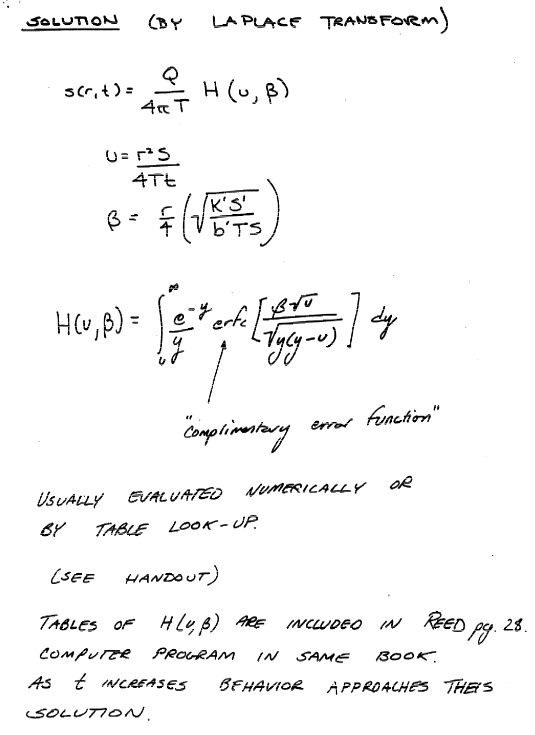 SOLUTION (BY LAPLACE TRANSFORM)
s(r,t) = Q / 4πT H(u,β)
u = r²S / 4Tt
β = r/4 (√(K'S' / b'TS))
H(u,β) = ∫_u^∞ e^-y / y erfc [β√u / √(y(y-u))] dy
"complimentary error function"
USUALLY EVALUATED NUMERICALLY OR
BY TABLE LOOK-UP.
(SEE HANDOUT)
TABLES OF H(u,β) ARE INCLUDED IN REED pg. 28.
COMPUTER PROGRAM IN SAME BOOK.
AS t INCREASES BEHAVIOR APPROACHES THEIS
SOLUTION.